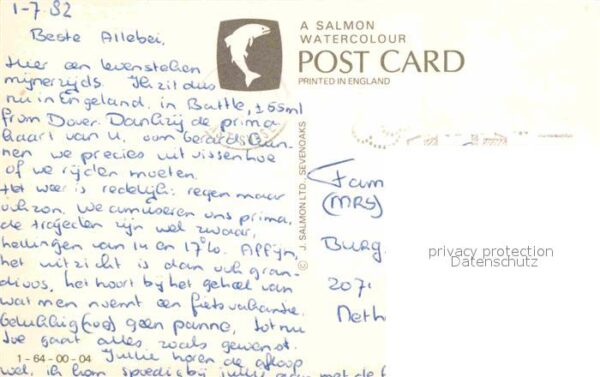 1-7 82
Beste Allebei,
Hier een levensteken
mijnerzijds. Ik zit dus
nu in Engeland, in Battle, ± 55 ml
from Dover. Dankzij de prima
kaart van U, oom Gerard kun-
nen we precies uitvissen hoe
of we rijden moeten.
Het weer is redelijk: regen maar
ook zon. We amuseren ons prima,
de trajecten zijn wel zwaar,
hellingen van 14 en 17%. Affijn,
het uitzicht is dan ook gran-
dioos, het hoort bij het geheel van
wat men noemt een fietsvakantie.
Gelukkig (nog) geen panne, tot nu
toe gaat alles zoals gewenst.
Jullie horen de afloop
wel, ik kom spoedig bij jullie aan met de
1-64-00-04
A SALMON
WATERCOLOUR
POST CARD
PRINTED IN ENGLAND
© J. SALMON LTD., SEVENOAKS
Fam
(MRS)
BURG.
207
Neth
privacy protection
Datenschutz